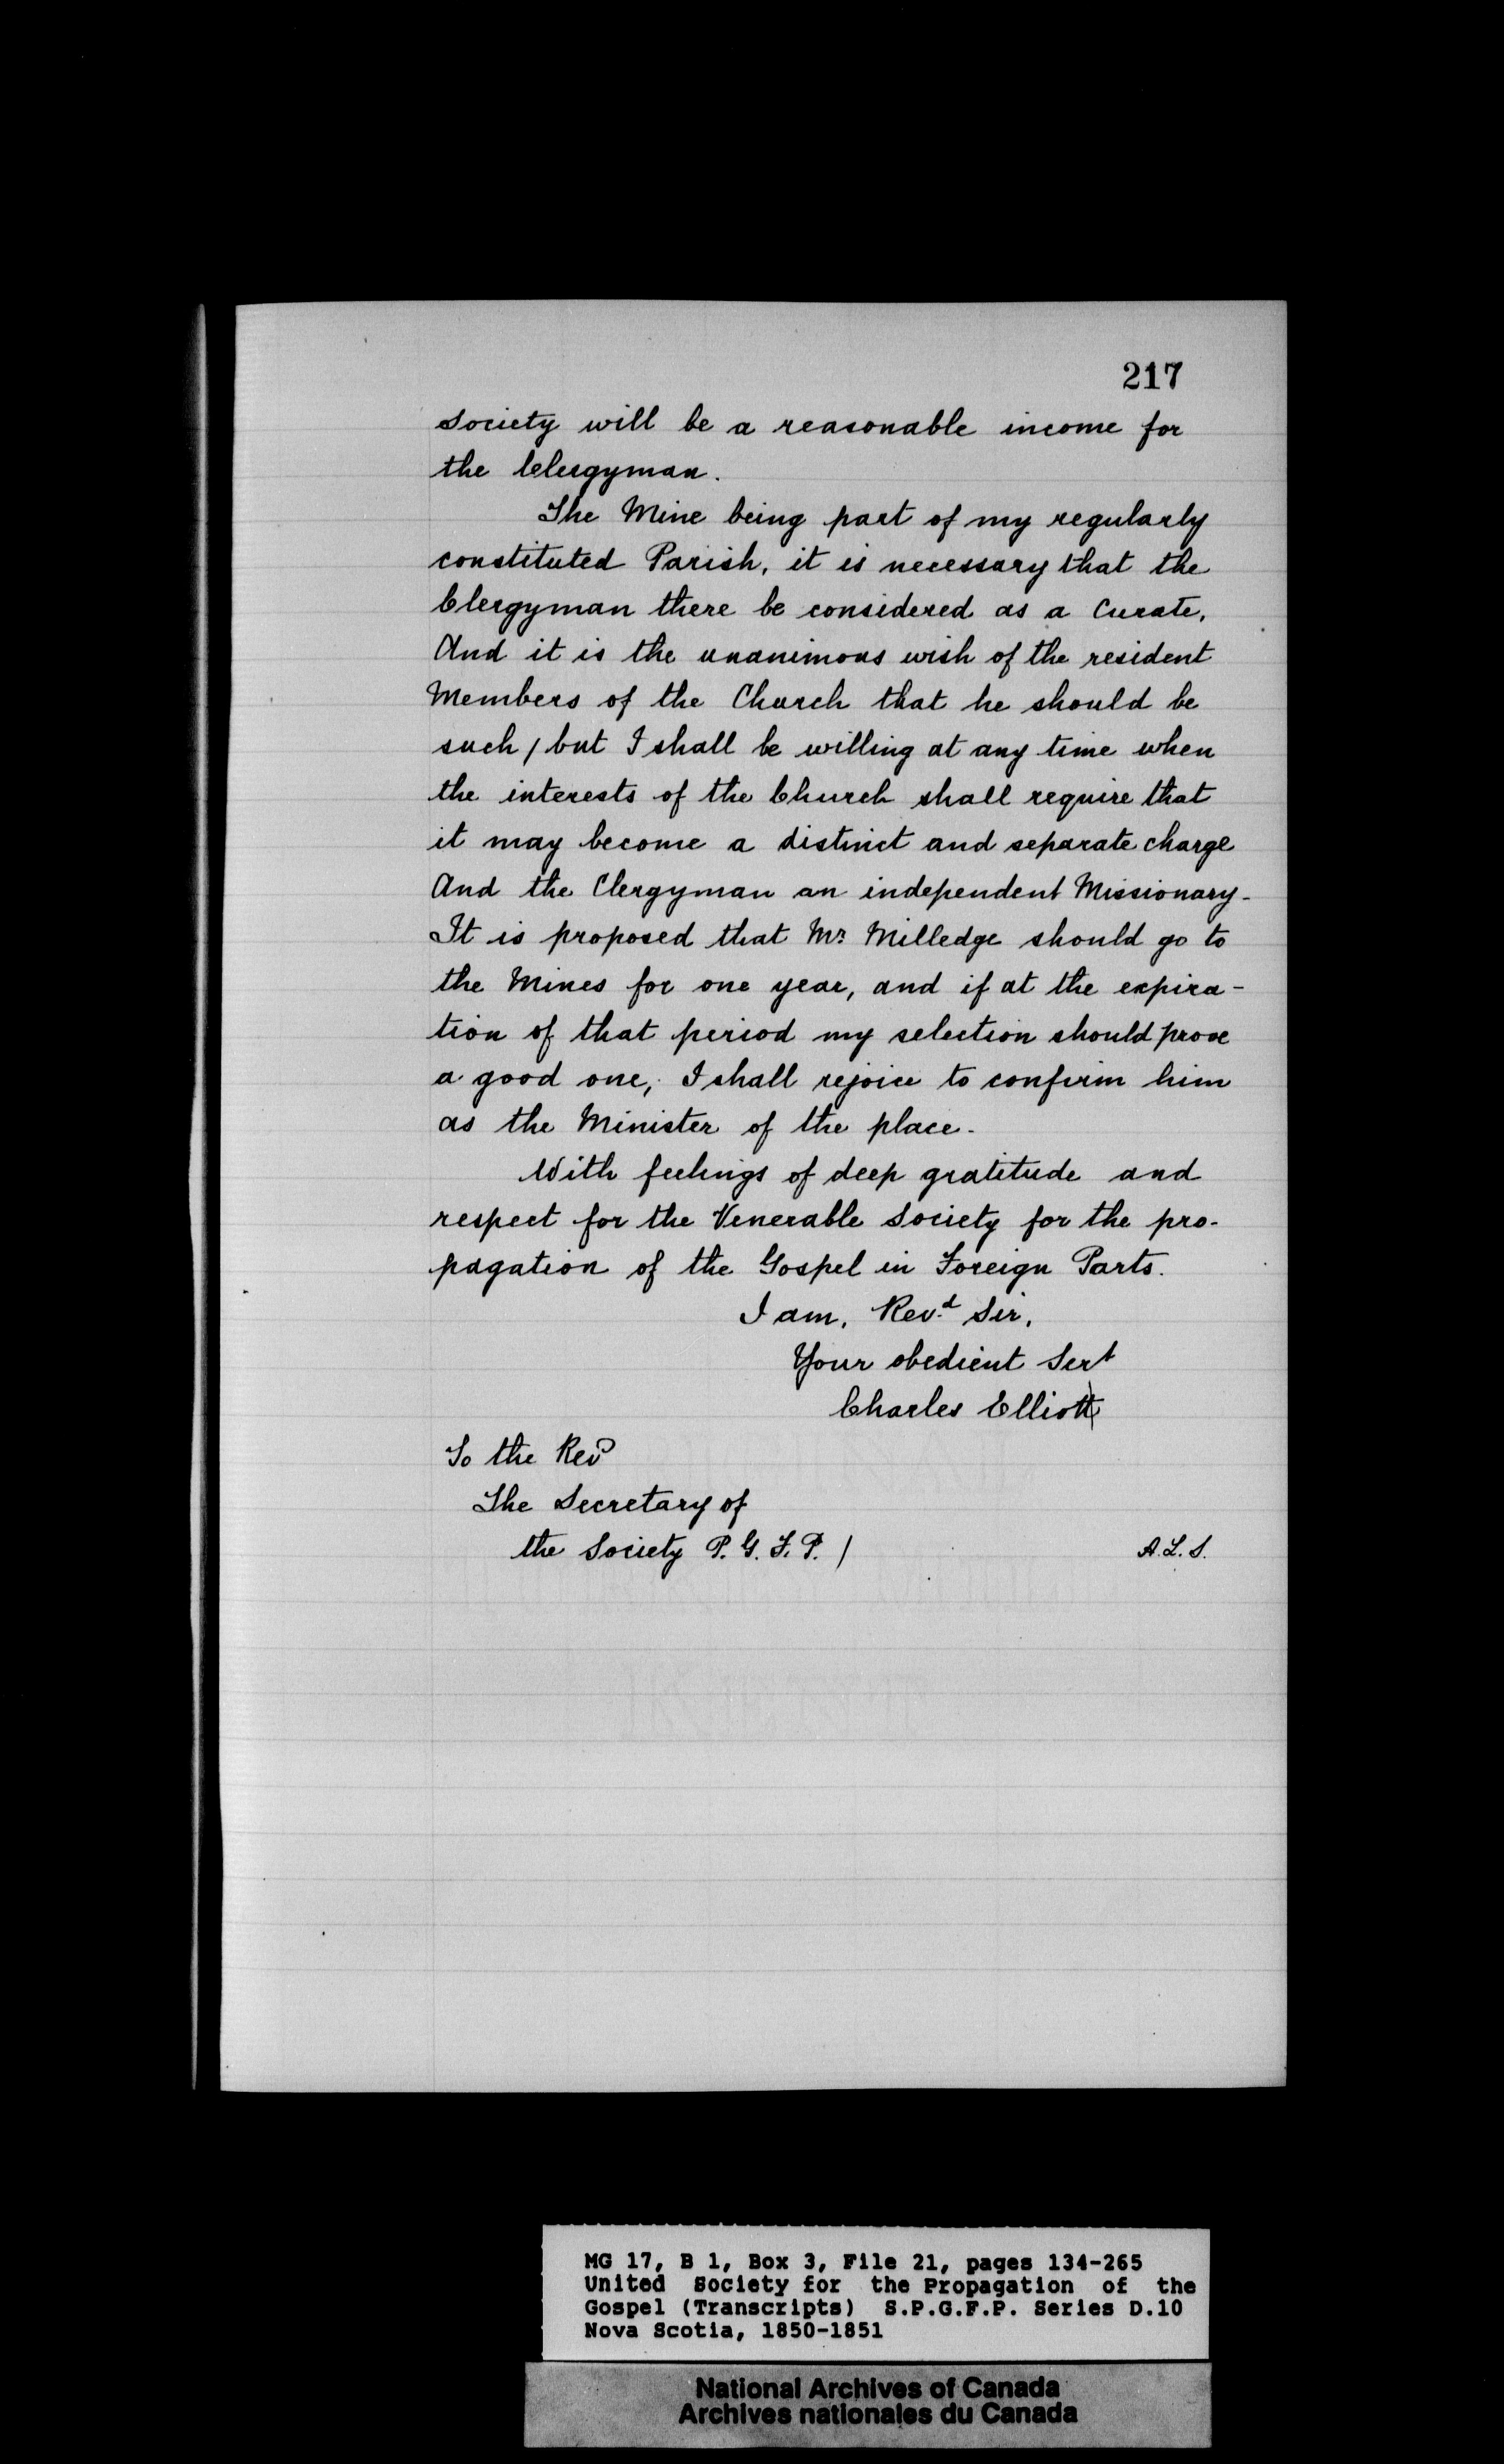 217
Society will be a reasonable income for
the Clergyman.
The Mine being part of my regularly
constituted Parish, it is necessary that the
Clergyman there be considered as a Curate,
And it is the unanimous wish of the resident
Members of the Church that he should be
such / but I shall be willing at any time when
the interests of the Church shall require that
it may become a distinct and separate charge
And the Clergyman an independent Missionary -
It is proposed that Mr Milledge should go to
the Mines for one year, and if at the expira-
tion of that period my selection should prove
a good one, I shall rejoice to confirm him
as the Minister of the place -
With feelings of deep gratitude and
respect for the Venerable Society for the pro-
pagation of the Gospel in Foreign Parts.
I am, Revd Sir,
Your obedient Sert
Charles Elliott
To the Revd
The Secretary of
the Society P. G. F. P. /
A.L.S.
MG 17, B 1, Box 3, File 21, pages 134-265
United Society for the Propagation of the
Gospel (Transcripts) S.P.G.F.P. Series D.10
Nova Scotia, 1850-1851
National Archives of Canada
Archives nationales du Canada